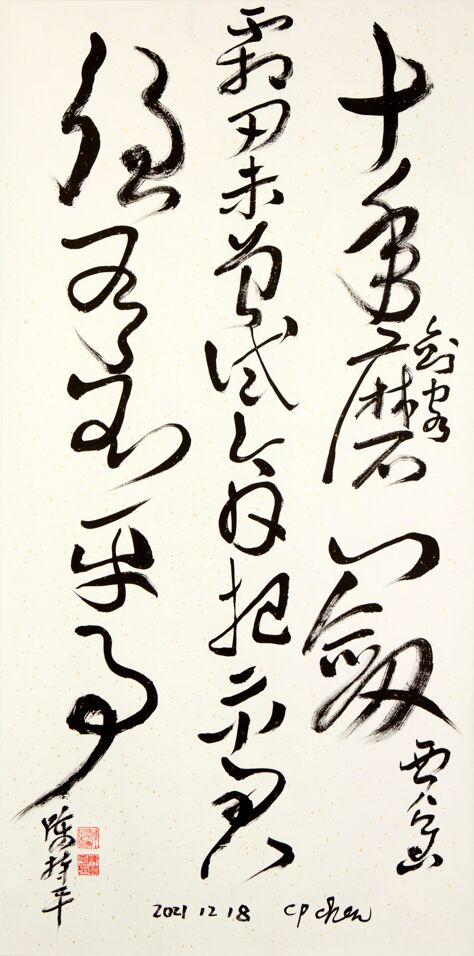 十年磨一劍
劍客
賈島
霜刃未曾試今日把示君
誰有不平事
陳持平
2021 12 18 CP Chen